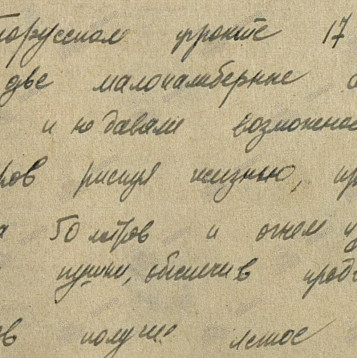 лорусском фронте 17
две малокалиберные
и не давали возможнос
ров рискуя жизнью, пр
50 метров и огнем
пушки, обеспечив прод
получил легкое